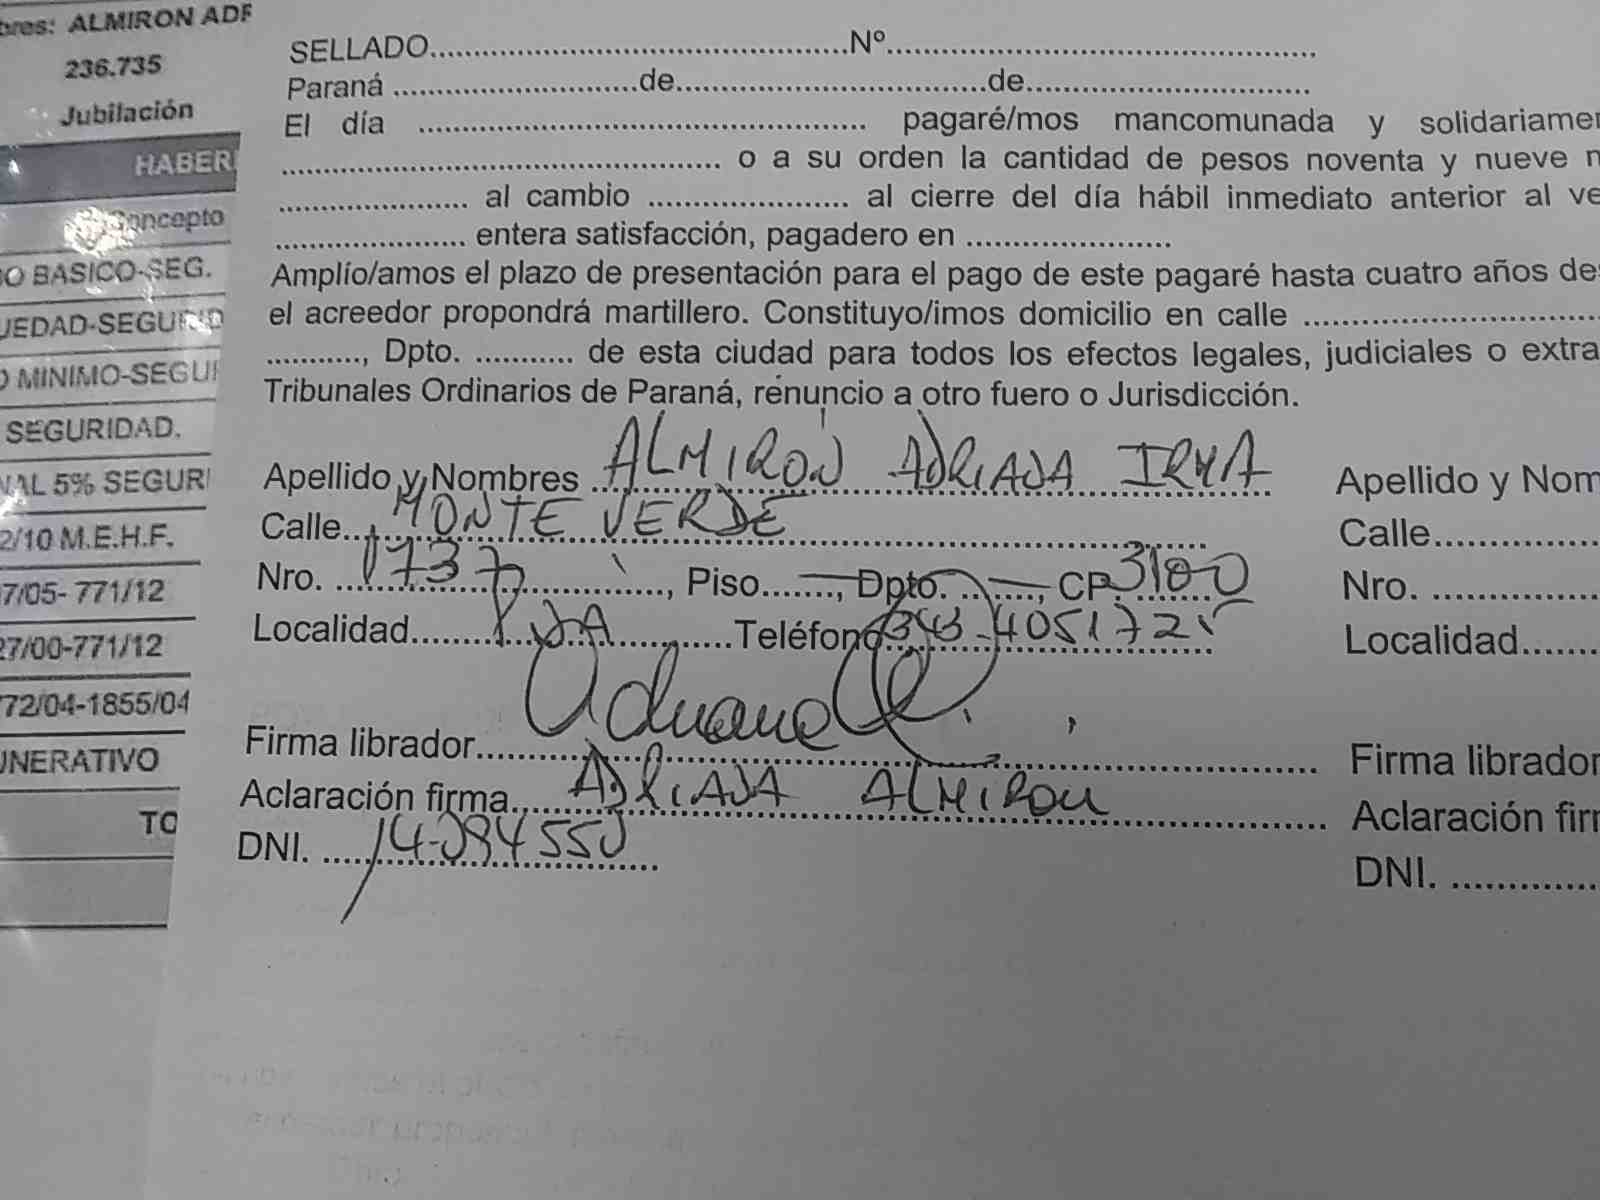 bres: ALMIRON ADR
236.735
Jubilación
HABER
Concepto
O BASICO-SEG.
UEDAD-SEGURID
O MINIMO-SEGUR
SEGURIDAD.
NAL 5% SEGURI
2/10 M.E.H.F.
7/05- 771/12
27/00-771/12
72/04-1855/04
UNERATIVO
TO
SELLADO..............................................Nº................................................
Paraná ............................de...................................de................................
El día .................................................. pagaré/mos mancomunada y solidariamen
.................................................. o a su orden la cantidad de pesos noventa y nueve m
...................... al cambio ....................... al cierre del día hábil inmediato anterior al ve
...................... entera satisfacción, pagadero en .......................
Amplío/amos el plazo de presentación para el pago de este pagaré hasta cuatro años des
el acreedor propondrá martillero. Constituyo/imos domicilio en calle ..................................
..........., Dpto. ........... de esta ciudad para todos los efectos legales, judiciales o extra
Tribunales Ordinarios de Paraná, renuncio a otro fuero o Jurisdicción.
Apellido y Nombres ALMIRÓN ADRIANA IRMA Apellido y Nom
Calle MONTE VERDE Calle..................
Nro. 1737, Piso......., Dpto. ......., CP 3100 Nro. ..................
Localidad PNA Teléfono 343-4051725 Localidad.......
Firma librador Adriana Firma librador
Aclaración firma ADRIANA ALMIRON Aclaración firm
DNI. 14.094550 DNI. ...............